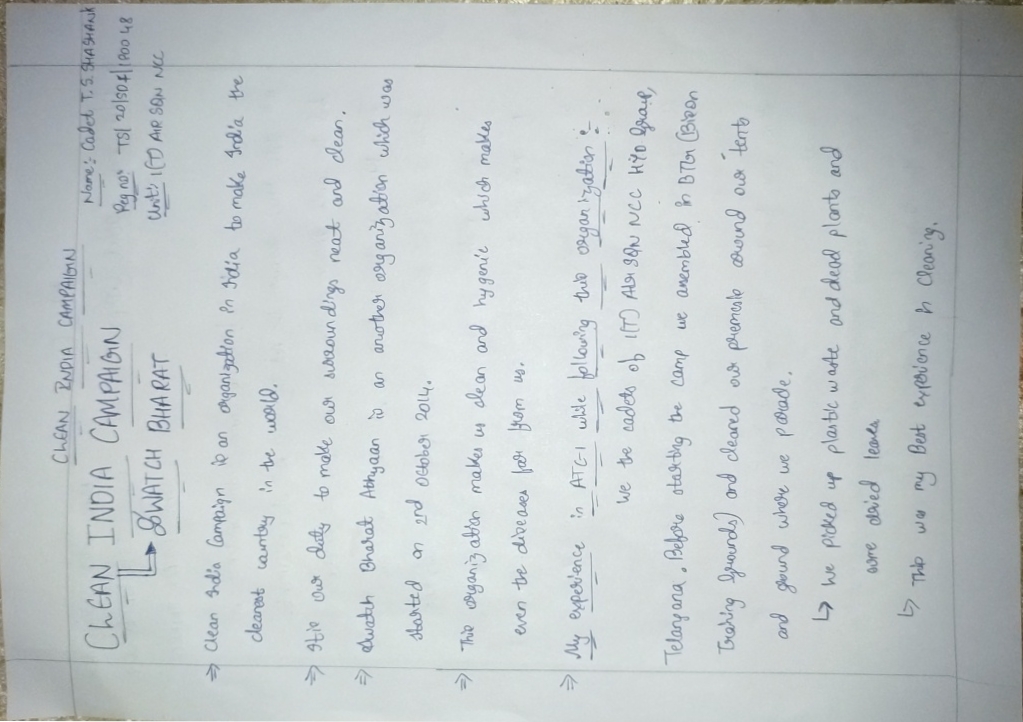 CLEAN INDIA CAMPAIGN
Name:- Cadet T.S. SHASHANK
CLEAN INDIA CAMPAIGN
Reg no:
SWATCH BHARAT
Unit: 1(T) AIR SQN NCC
⇒ Clean India Campaign is an organization in India to make India the
cleanest country in the world.
⇒ It is our duty to make our surroundings neat and clean.
⇒ Swatch Bharat Abhyaan is an another organization which was
started on 2nd October 2014.
⇒ This organization makes us clean and hygenic which makes
even the diseases far from us.
⇒ My experience in ATC-1 while following this organization :-
We the cadets of 1(T) Air SQN NCC HYD Group,
Telangana. Before starting the camp we assembled in BTGr (Bison
Traning Grounds) and cleared our premesis around our tents
and ground where we parade.
↳ We picked up plastic waste and dead plants and
some dried leaves
↳ This was my Best experience in Cleaning.